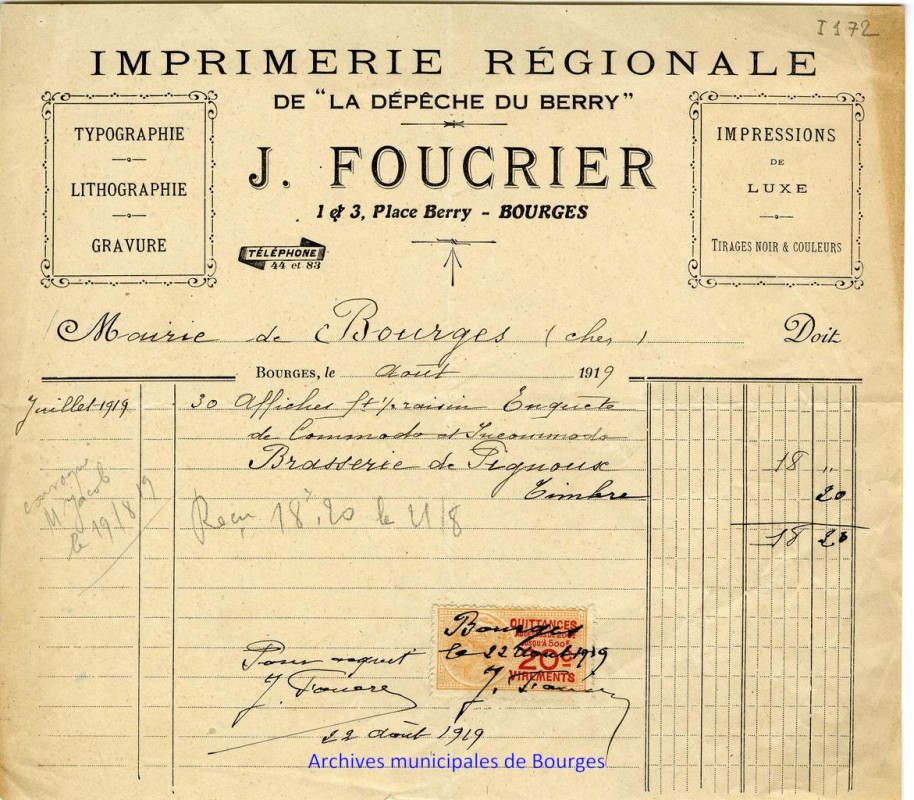 I 172
IMPRIMERIE RÉGIONALE
DE "LA DÉPÊCHE DU BERRY"
TYPOGRAPHIE
LITHOGRAPHIE
GRAVURE
J. FOUCRIER
1 & 3, Place Berry - BOURGES
TÉLÉPHONE
44 et 83
IMPRESSIONS
DE
LUXE
TIRAGES NOIR & COULEURS
Mairie de Bourges (Cher) Doit
BOURGES, le août 1919
Juillet 1919 30 Affiches 1/2 raisin Enquête
de Commodo et Incommodo
Brasserie de Pignoux 18 "
Timbre 20
18 20
M. Jacob
le 19/8/19
Reçu 18,20 le 21/8
QUITTANCES
JUSQU'À 500F
20c
VIREMENTS
Bourges
le 22 août 1919
Pour acquit
22 août 1919
Archives municipales de Bourges